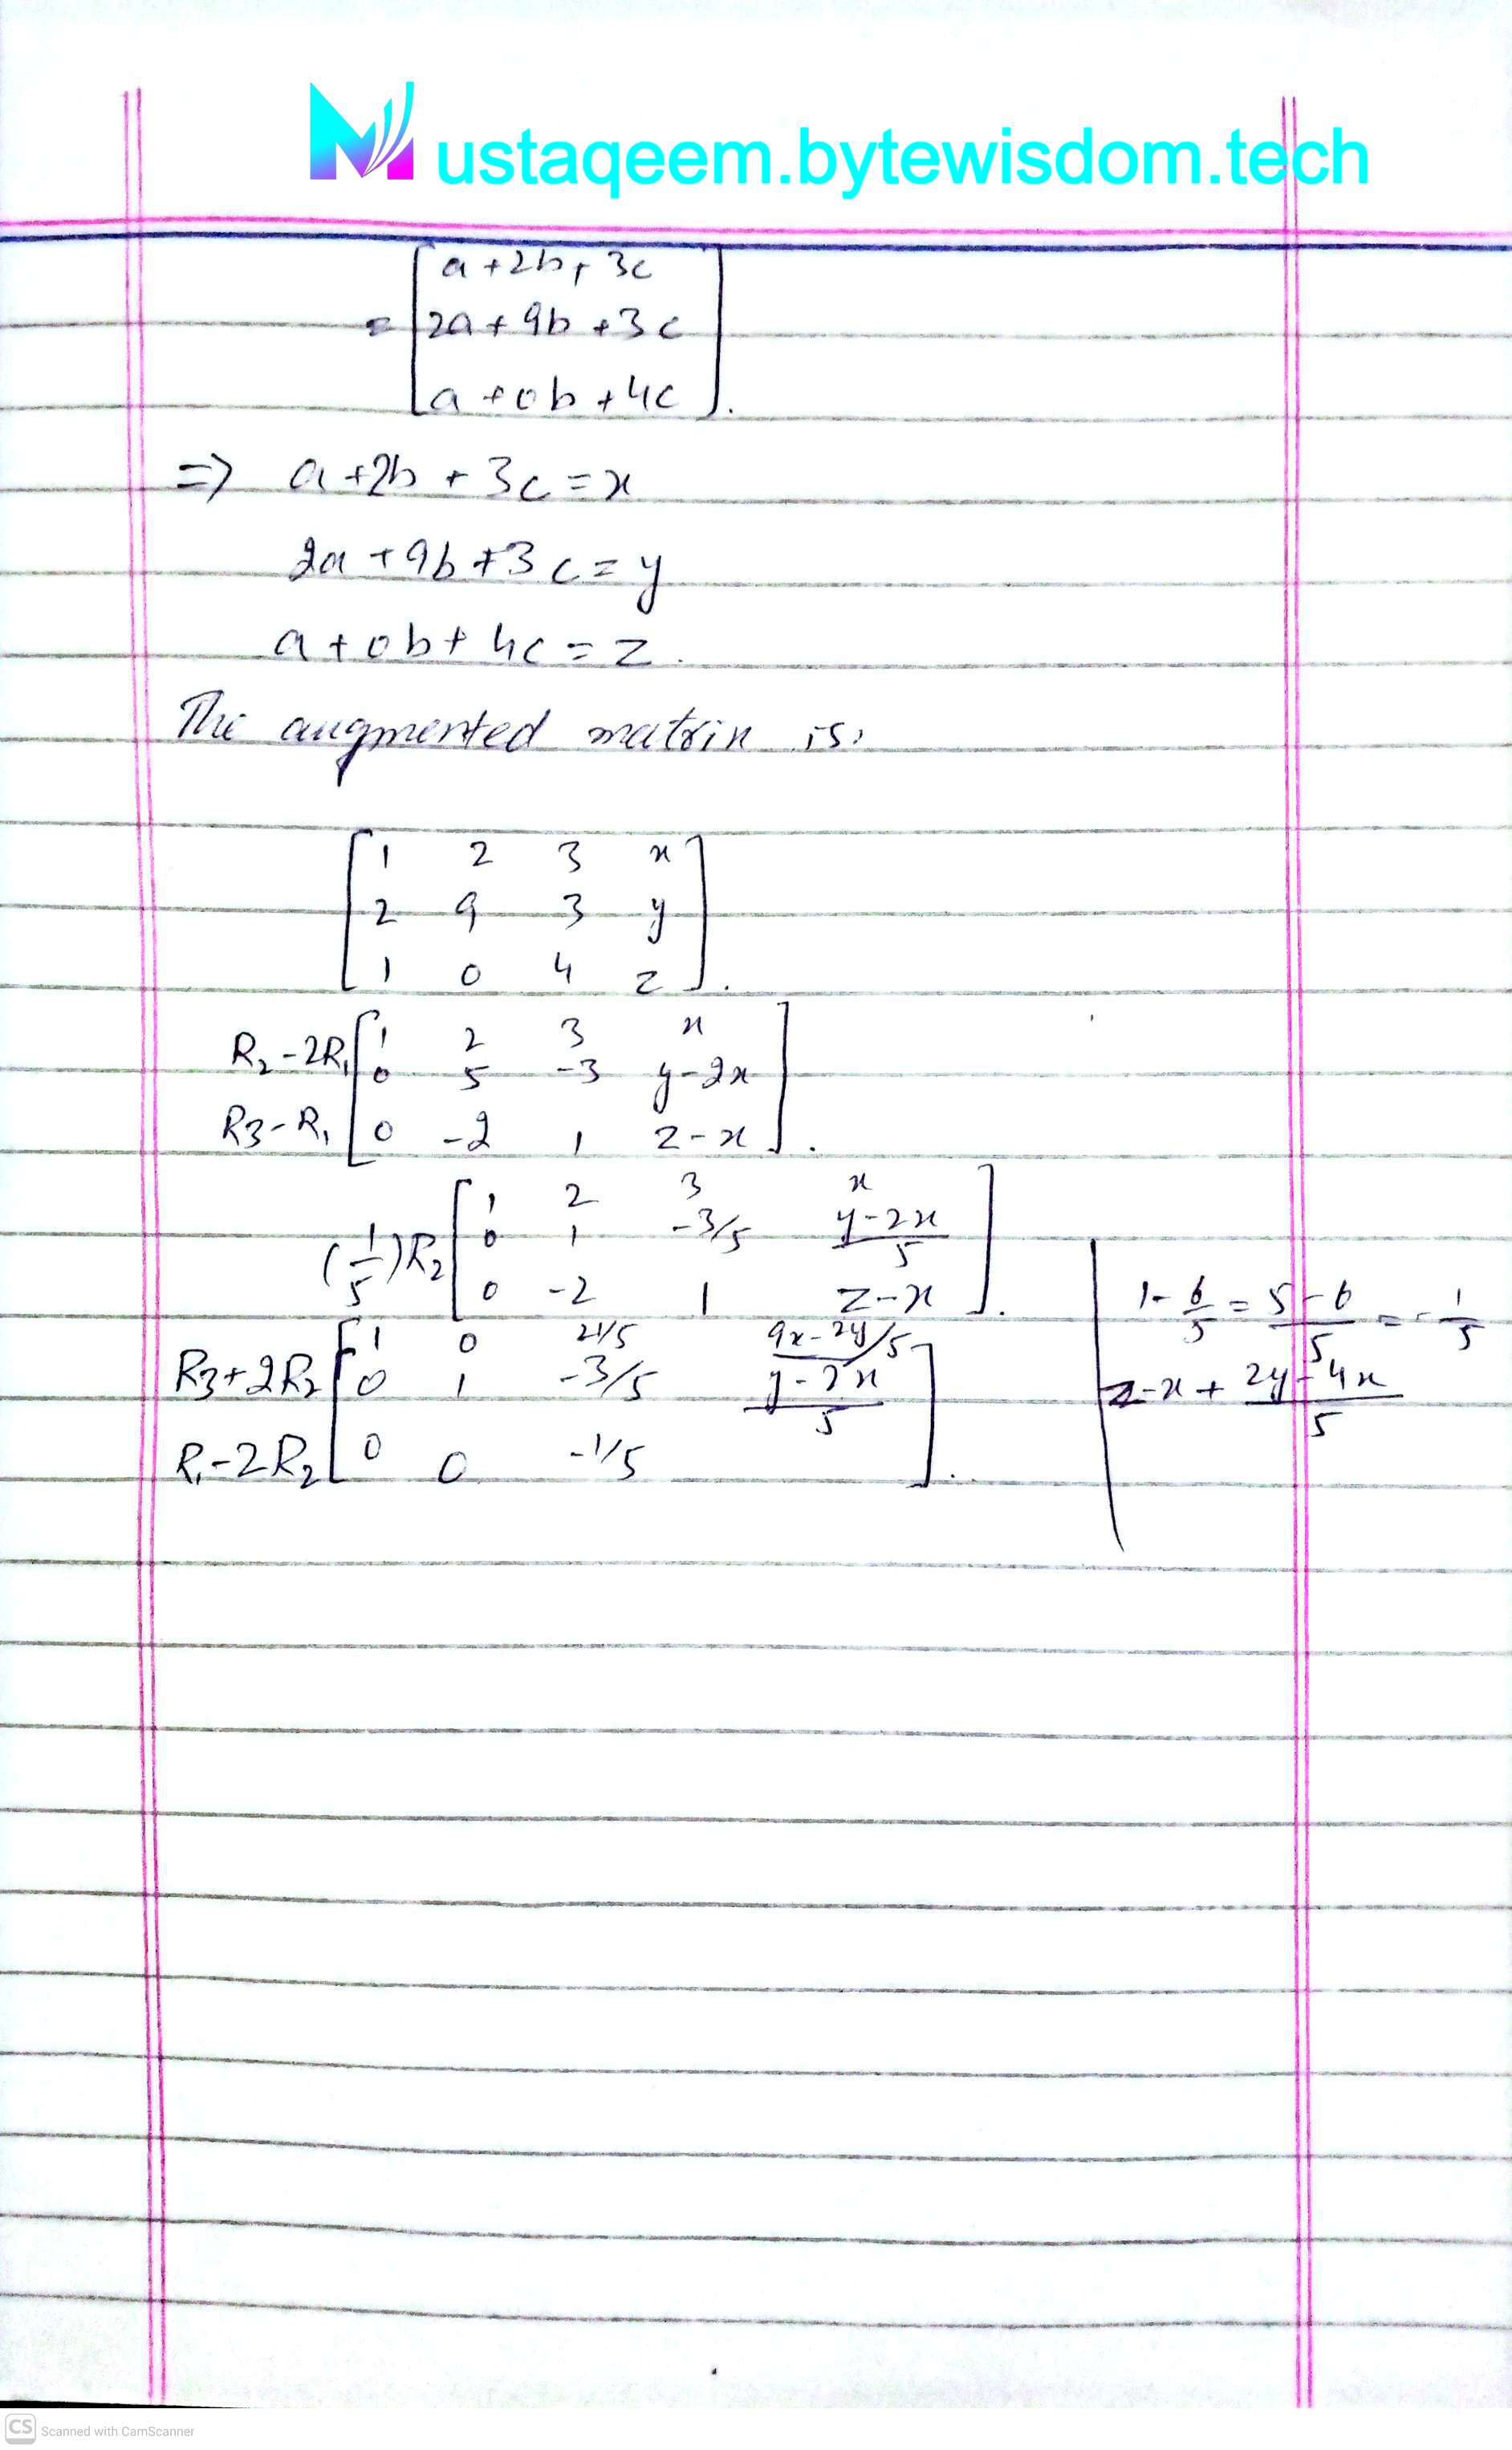 Mustaqeem.bytewisdom.tech
a + 2b + 3c
= 2a + 9b + 3c
a + 0b + 4c .
=> a + 2b + 3c = x
2a + 9b + 3c = y
a + 0b + 4c = z .
The augmented matrix is:
1 2 3 x
2 9 3 y
1 0 4 z .
1 2 3 x
R2 - 2R1 0 5 -3 y - 2x
R3 - R1 0 -2 1 z - x .
1 2 3 x
(1/5)R2 0 1 -3/5 (y - 2x)/5
0 -2 1 z - x .
1 0 21/5 9x - 2y/5
R3 + 2R2 0 1 -3/5 (y - 2x)/5
R1 - 2R2 0 0 -1/5 .
1 - 6/5 = (5 - 6)/5 = -1/5
z - x + (2y - 4x)/5
CS Scanned with CamScanner